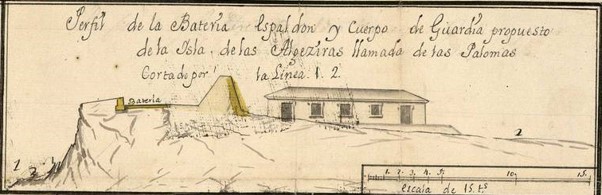 Perfil de la Bateria Espaldon y Cuerpo de Guardia propuesto
de la Isla de las Algeziras llamada de las Palomas
Cortado por la Linea 1. 2.
Bateria
1 2
2
1. 2. 3. 4. 5. 10. 15.
Escala de 15. ts